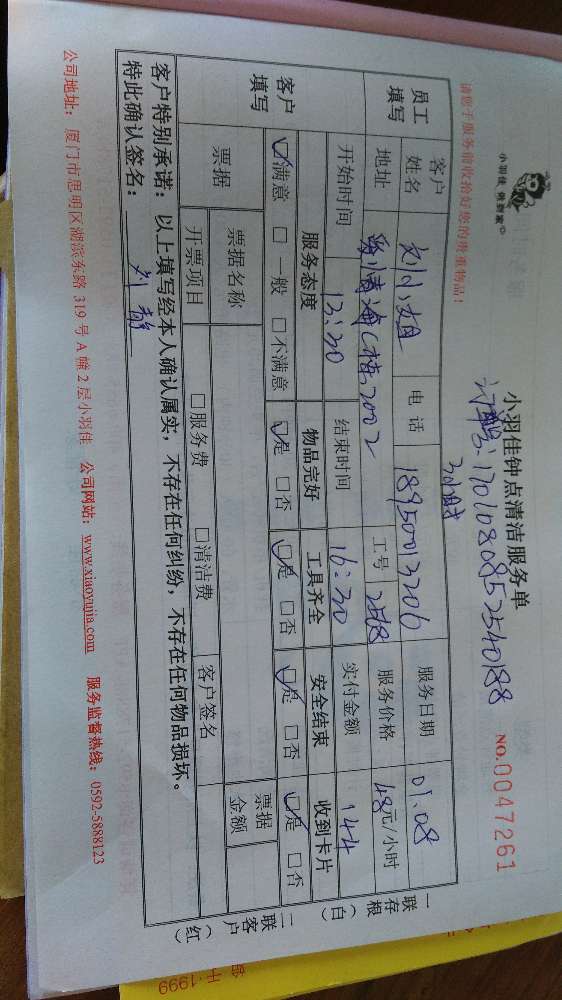 小羽佳 您到家
小羽佳钟点清洁服务单
NO.0047261
订单:17010808525540188
请您于服务前收拾好您的贵重物品!
3小时
员工填写 客户姓名 刘小姐 电话 18950013206 服务日期 01.08
地址 C栋2002 工号 2568 服务价格 48元/小时
开始时间 13:30 结束时间 16:30 实付金额 144
客户填写 服务态度 物品完好 工具齐全 安全结束 收到卡片
☑满意 □一般 □不满意 ☑是 □否 ☑是 □否 ☑是 □否 ☑是 □否
票据 票据名称 客户签名 票据金额
开票项目 □服务费 □清洁费
客户特别承诺: 以上填写经本人确认属实,不存在任何纠纷,不存在任何物品损坏。
特此确认签名:
一联存根(白) 二联客户(红)
公司地址: 厦门市思明区湖滨东路 319 号 A 幢 2 层小羽佳 公司网站: www.xiaoyujia.com 服务监督热线: 0592-5888123
1999